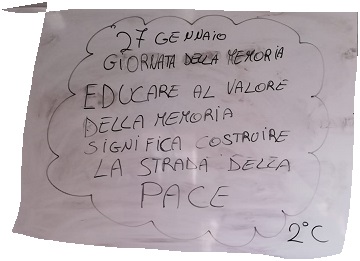 27 GENNAIO
GIORNATA DELLA MEMORIA
EDUCARE AL VALORE
DELLA MEMORIA
SIGNIFICA COSTRUIRE
LA STRADA DELLA
PACE
2°C